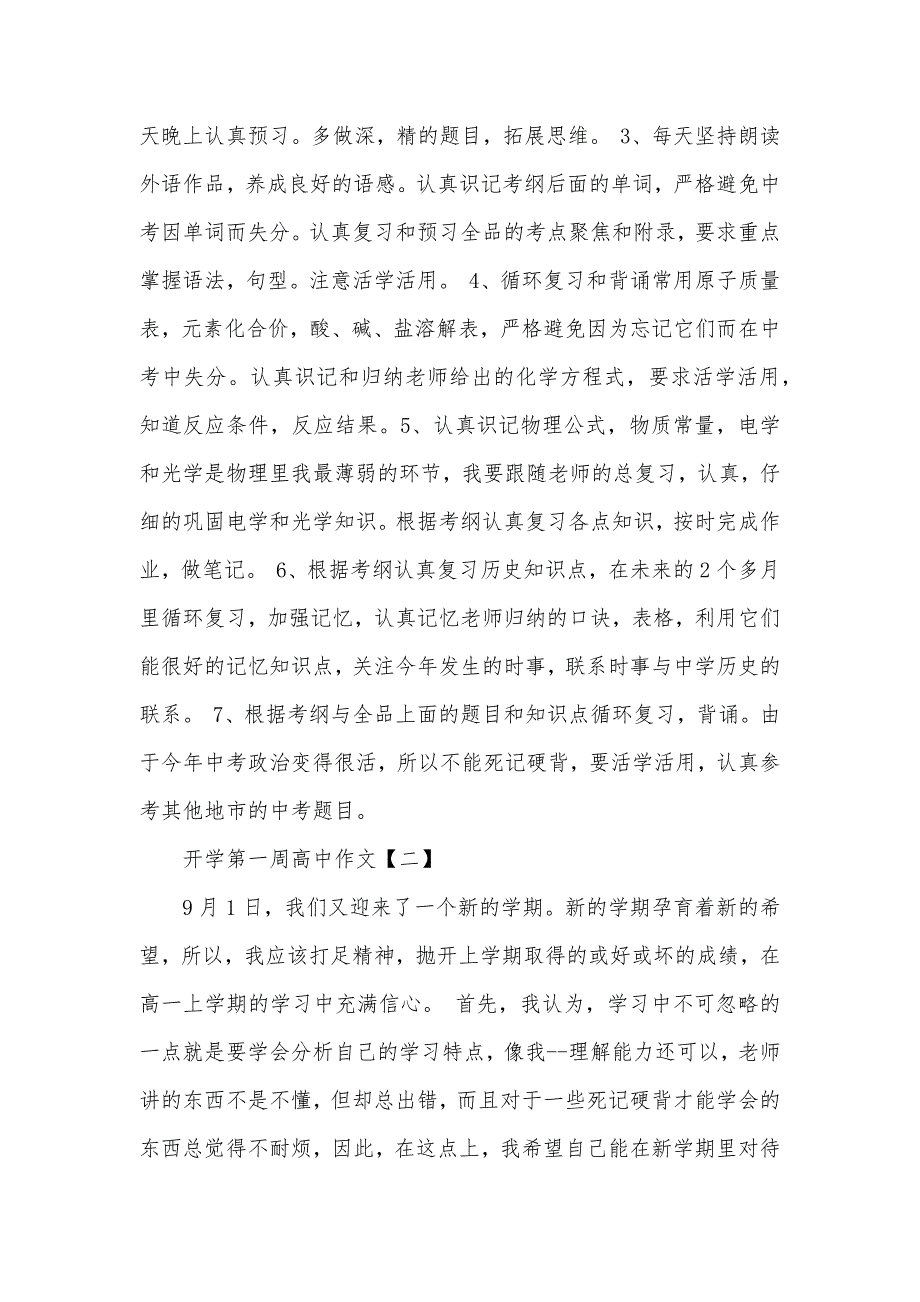 天晚上认真预习。多做深，精的题目，拓展思维。 3、每天坚持朗读
外语作品，养成良好的语感。认真识记考纲后面的单词，严格避免中
考因单词而失分。认真复习和预习全品的考点聚焦和附录，要求重点
掌握语法，句型。注意活学活用。 4、循环复习和背诵常用原子质量
表，元素化合价，酸、碱、盐溶解表，严格避免因为忘记它们而在中
考中失分。认真识记和归纳老师给出的化学方程式，要求活学活用，
知道反应条件，反应结果。5、认真识记物理公式，物质常量，电学
和光学是物理里我最薄弱的环节，我要跟随老师的总复习，认真，仔
细的巩固电学和光学知识。根据考纲认真复习各点知识，按时完成作
业，做笔记。 6、根据考纲认真复习历史知识点，在未来的2个多月
里循环复习，加强记忆，认真记忆老师归纳的口诀，表格，利用它们
能很好的记忆知识点，关注今年发生的时事，联系时事与中学历史的
联系。 7、根据考纲与全品上面的题目和知识点循环复习，背诵。由
于今年中考政治变得很活，所以不能死记硬背，要活学活用，认真参
考其他地市的中考题目。
开学第一周高中作文【二】
9月1日，我们又迎来了一个新的学期。新的学期孕育着新的希
望，所以，我应该打足精神，抛开上学期取得的或好或坏的成绩，在
高一上学期的学习中充满信心。 首先，我认为，学习中不可忽略的
一点就是要学会分析自己的学习特点，像我--理解能力还可以，老师
讲的东西不是不懂，但却总出错，而且对于一些死记硬背才能学会的
东西总觉得不耐烦，因此，在这点上，我希望自己能在新学期里对待